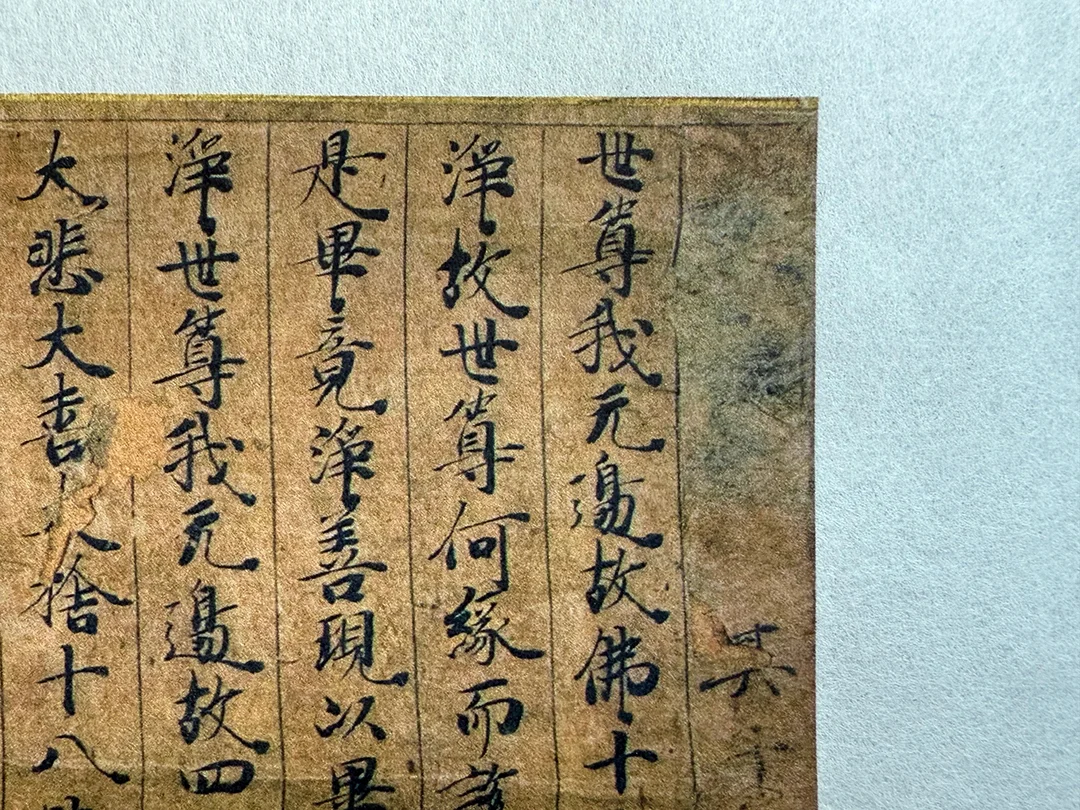 卅六
世尊我无邊故佛十
淨故世尊何緣而
是畢竟淨善現以畢
淨世尊我无邊故四
大悲大喜大捨十八